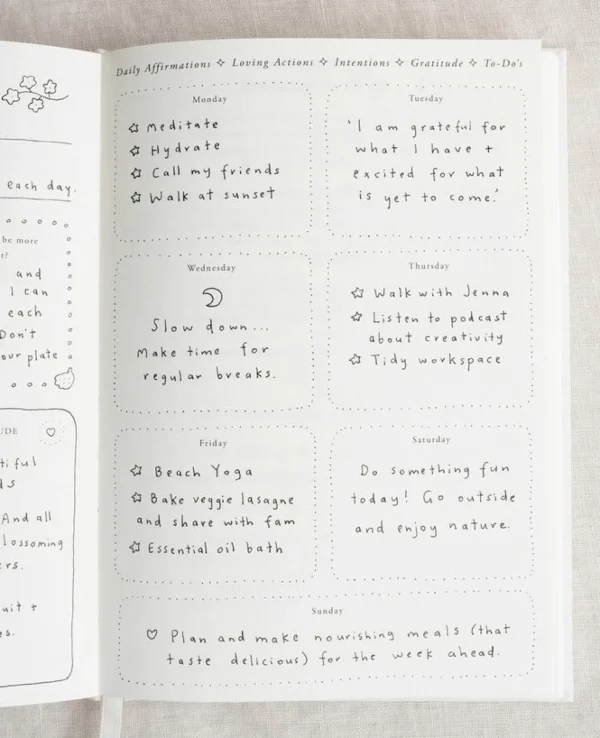 each day.
be more
t?
and
I can
each
Don't
our plate
UDE
tiful
ds
And all
lossoming
ers.
uit +
es.
Daily Affirmations ✧ Loving Actions ✧ Intentions ✧ Gratitude ✧ To-Do's
Monday
☆ Meditate
☆ Hydrate
☆ Call my friends
☆ Walk at sunset
Tuesday
'I am grateful for
what I have +
excited for what
is yet to come.'
Wednesday
Slow down...
Make time for
regular breaks.
Thursday
☆ Walk with Jenna
☆ Listen to podcast
about creativity
☆ Tidy workspace
Friday
☆ Beach Yoga
☆ Bake veggie lasagne
and share with fam
☆ Essential oil bath
Saturday
Do something fun
today! Go outside
and enjoy nature.
Sunday
♡ Plan and make nourishing meals (that
taste delicious) for the week ahead.